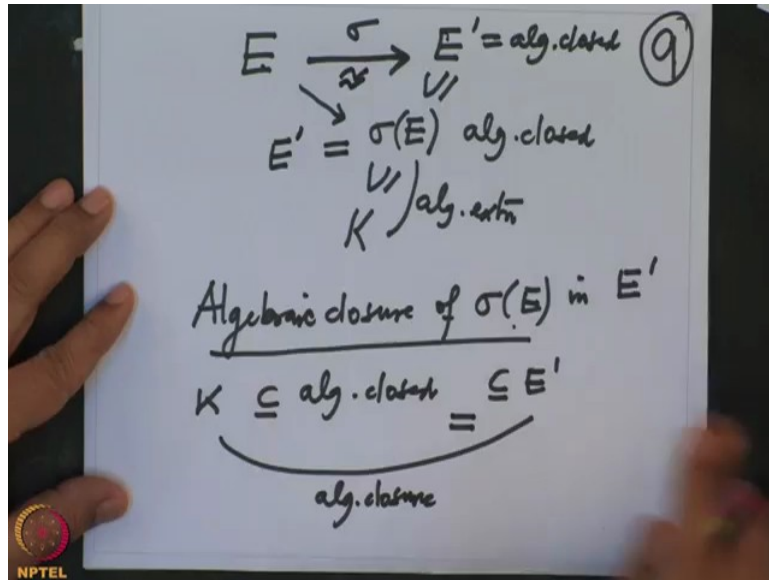 E σ→ ≈ E' = alg.closed 9
E' = σ(E) alg.closed
K alg.extn
Algebraic closure of σ(E) in E'
K ⊆ alg.closed = ⊆ E'
alg.closure
NPTEL